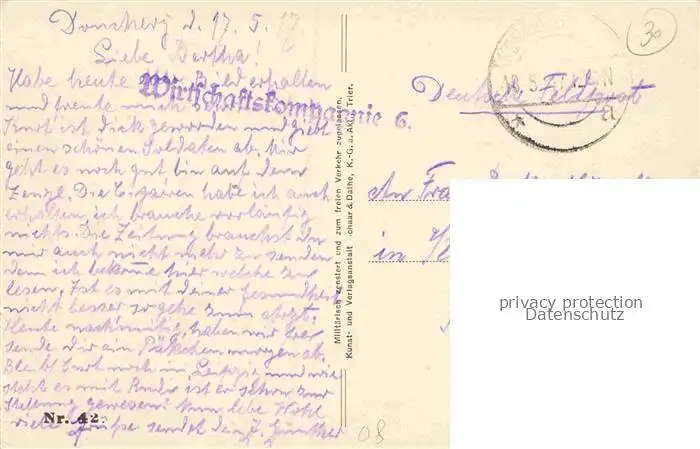 Donchery d. 17. 5. 17
Liebe Bertha!
Habe heute Bild erhalten
und freute mich
Kurt ist dick geworden und gibt
einen schönen Soldaten ab. Mir
geht es noch gut bin auf dem
Die Cigarren habe ich auch
erhalten, ich brauche vorläufig
nichts. Die Zeitung brauchst Du
mir auch nicht mehr zu senden
denn ich bekome hier welche zu
lesen. Ist es mit deiner Gesundheit
nicht besser so gehe zum Arzt.
Heute nachmittag haben wir frei
sende dir ein Päkchen morgen ab.
Bleibt Curt noch in Leipzig und wie
steht es mit Rudi ist er schon zur
Stellung gewesen? Nun lebe Wohl
viele Grüße sendet dein J. Günther
Nr. 42.
Wirtschaftskompagnie 6.
Militärisch zensiert und zum freien Verkehr zugelassen.
Kunst- und Verlagsanstalt Schaar & Dathe, K.-G. a. Akt., Trier.
30
18. 5. 17 N
Deutsche Feldpost
An Frau
in
08
privacy protection
Datenschutz